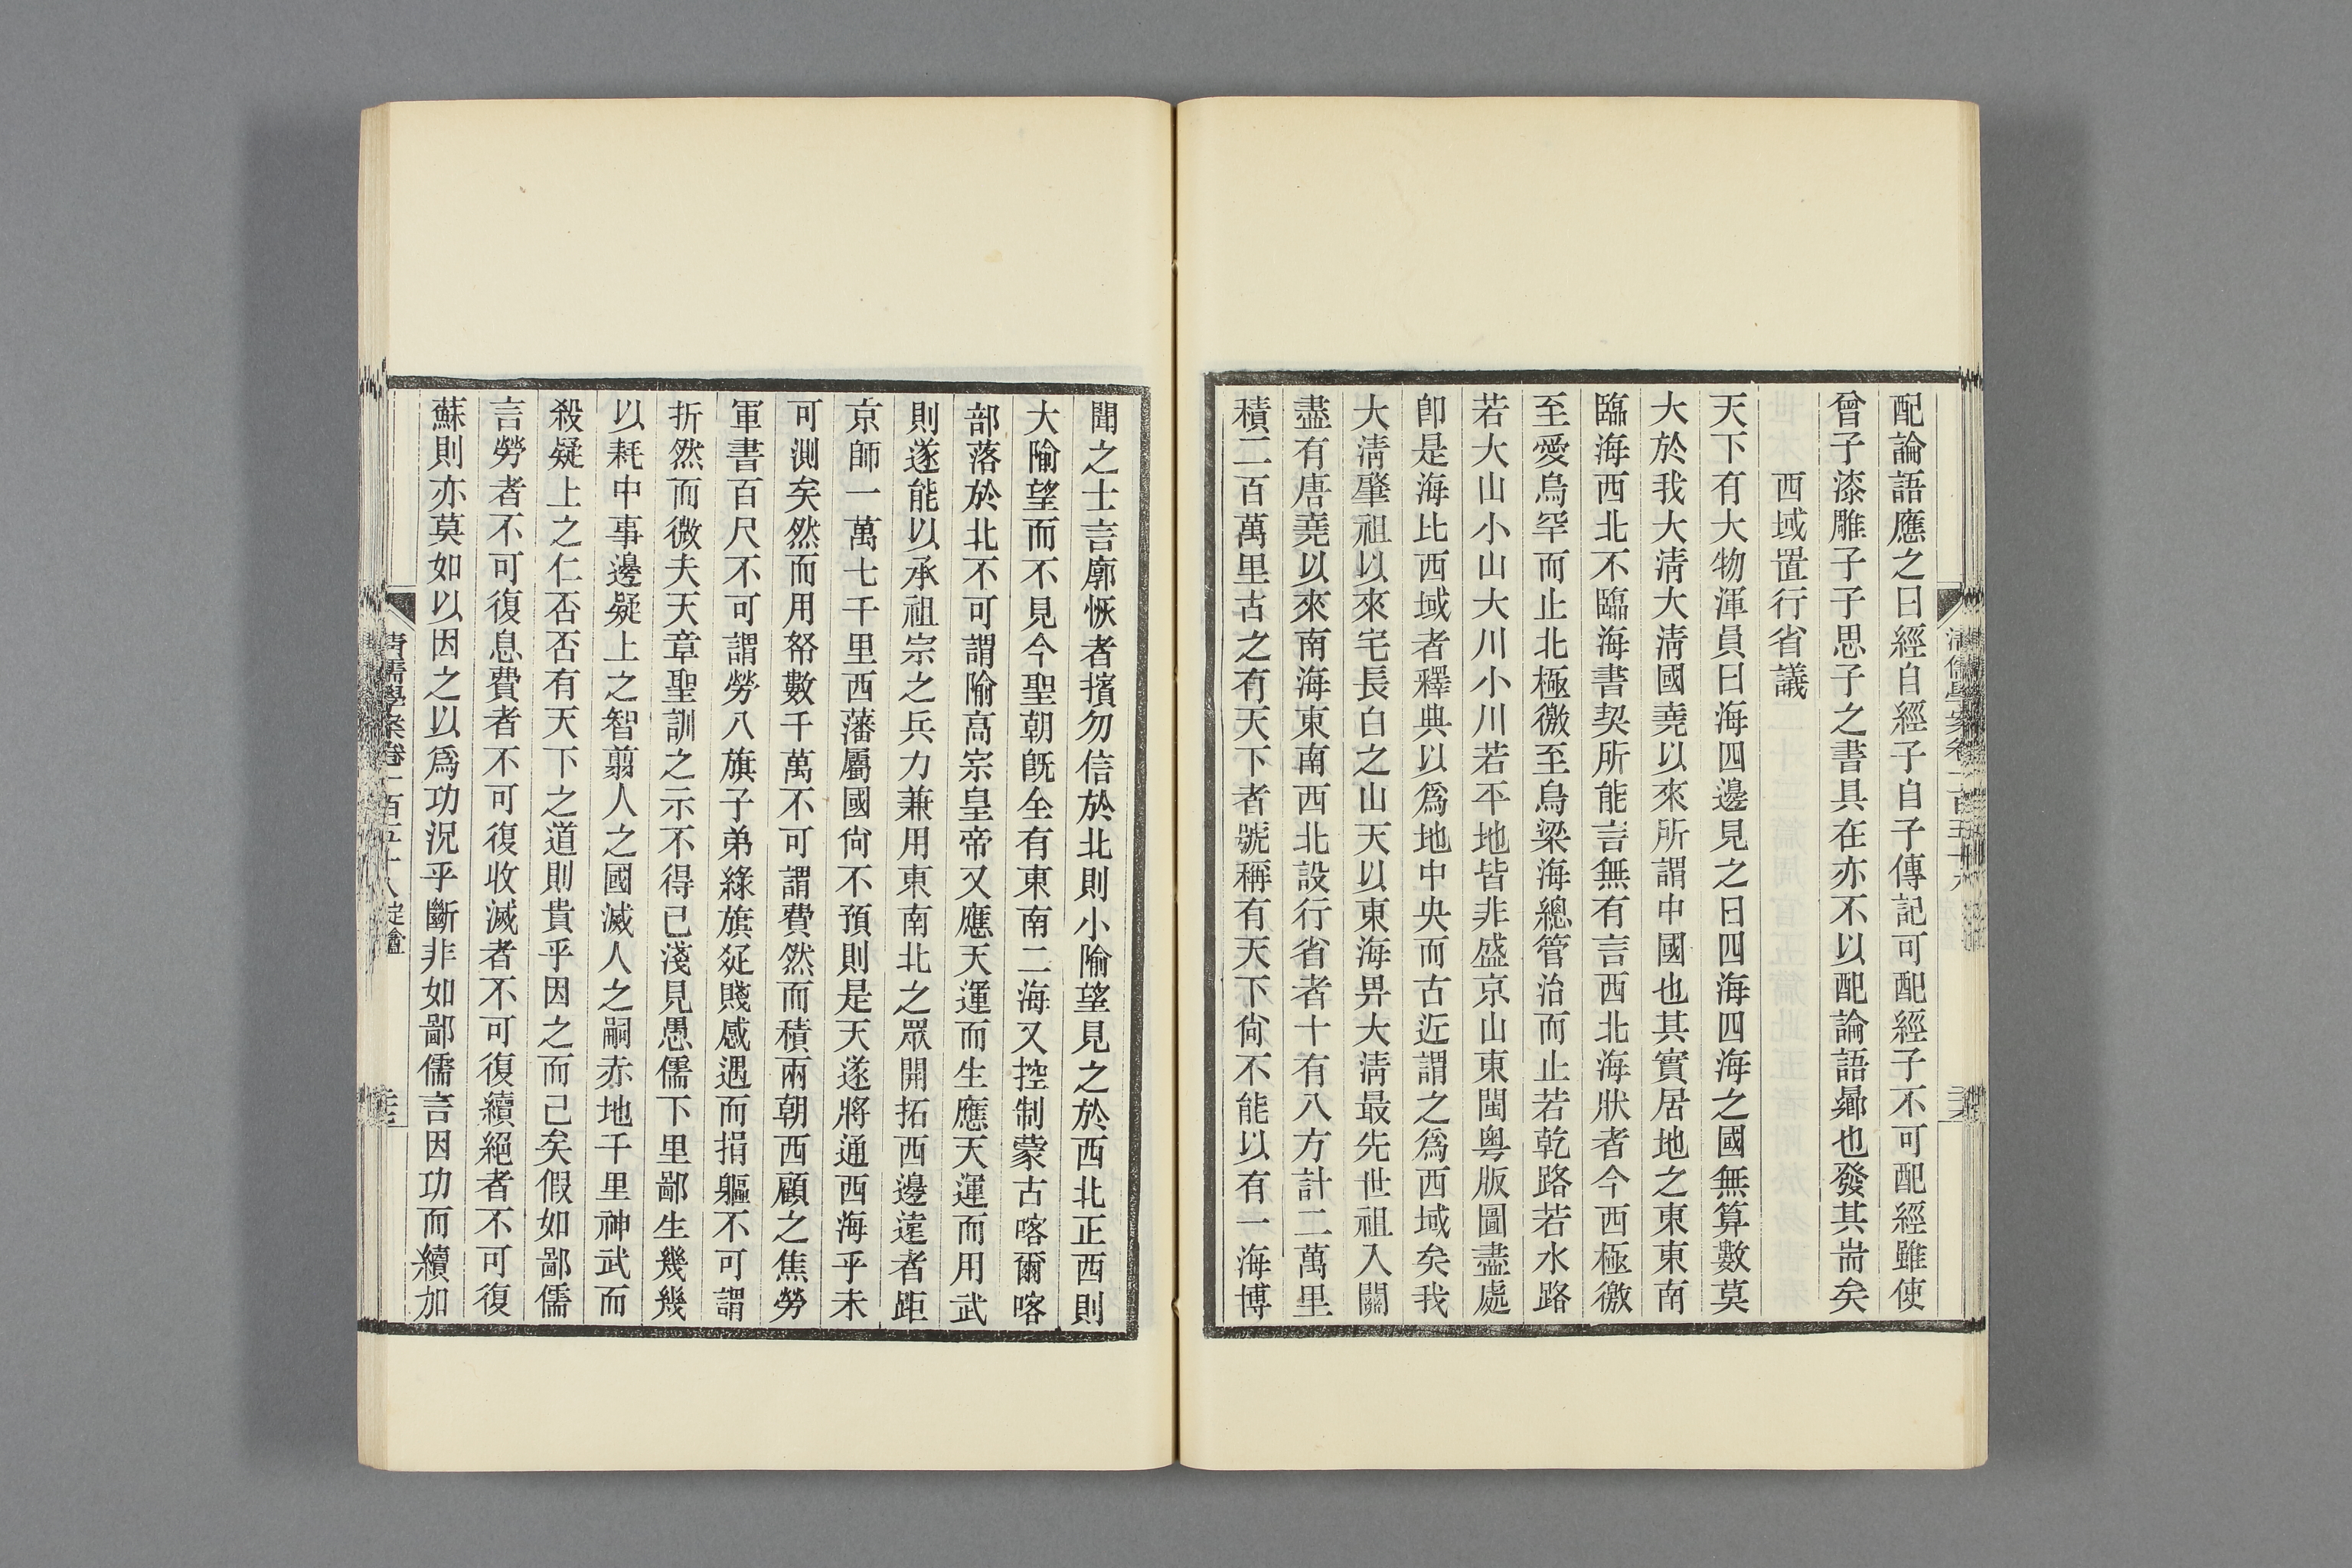 配論語應之曰經自經子自子傳記可配經子不可配經雖使
曾子漆雕子子思子之書具在亦不以配論語㬎也發其耑矣
西域置行省議
天下有大物渾員曰海四邊見之曰四海四海之國無算數莫
大於我大清大清國堯以來所謂中國也其實居地之東東南
臨海西北不臨海書契所能言無有言西北海狀者今西極徼
至愛烏罕而止北極徼至烏梁海總管治而止若乾路若水路
若大山小山大川小川若平地皆非盛京山東閩粵版圖盡處
卽是海比西域者釋典以爲地中央而古近謂之爲西域矣我
大清肇祖以來宅長白之山天以東海畀大清最先世祖入關
盡有唐堯以來南海東南西北設行省者十有八方計二萬里
積二百萬里古之有天下者號稱有天下尙不能以有一海博
聞之士言廓恢者擯勿信於北則小隃望見之於西北正西則
大隃望而不見今聖朝旣全有東南二海又控制蒙古喀爾喀
部落於北不可謂隃高宗皇帝又應天運而生應天運而用武
則遂能以承祖宗之兵力兼用東南北之眾開拓西邊遠者距
京師一萬七千里西藩屬國尙不預則是天遂將通西海乎未
可測矣然而用帑數千萬不可謂費然而積兩朝西顧之焦勞
軍書百尺不可謂勞八旗子弟綠旗㢟賤感遇而捐軀不可謂
折然而微夫天章聖訓之示不得已淺見愚儒下里鄙生幾幾
以耗中事邊疑上之智翦人之國滅人之嗣赤地千里神武而
殺疑上之仁否否有天下之道則貴乎因之而已矣假如鄙儒
言勞者不可復息費者不可復收滅者不可復續絕者不可復
蘇則亦莫如以因之以爲功況乎斷非如鄙儒言因功而續加
清儒學案卷一百五十八 定盦